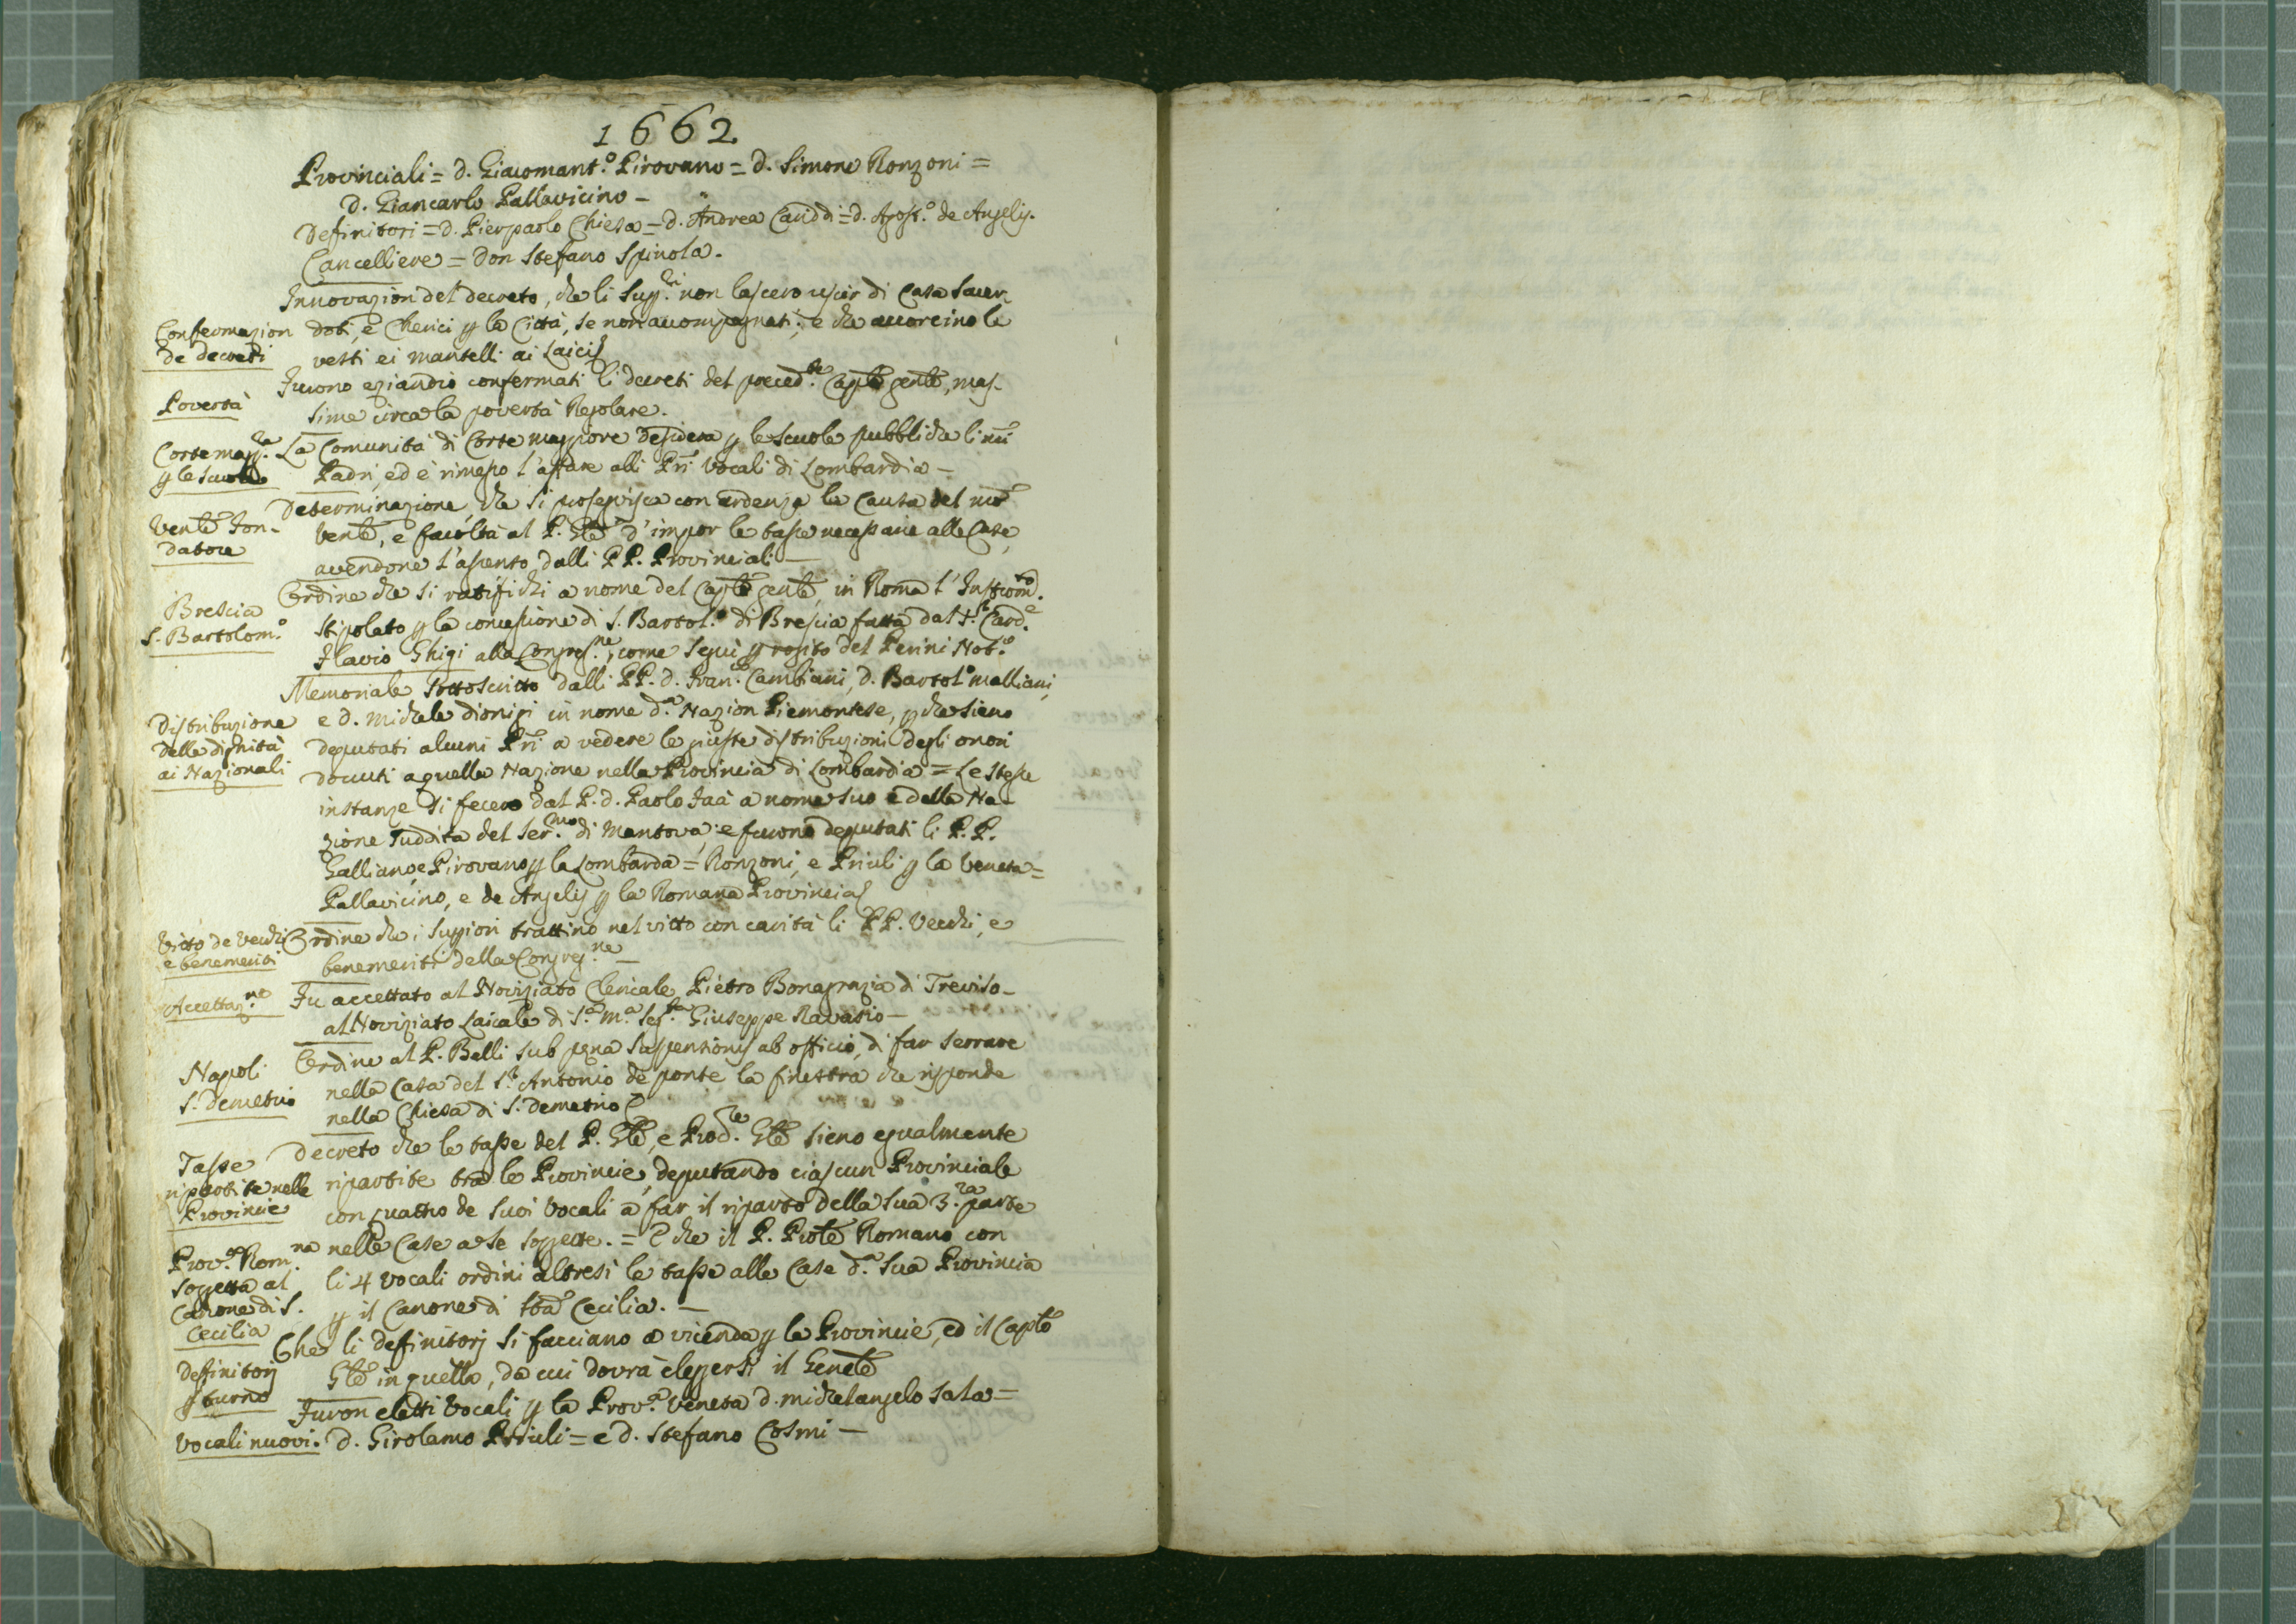 1662
Provinciali = d. Giacomant.º Pirovano = d. Simone Ronzoni =
d. Giancarlo Pallavicino -
Definitori = d. Pierpaolo Chiesa = d. Andrea Cariddi = d. Agost.º de Angelis.
Cancelliere = Don Stefano Spinola.
Innovazion del decreto, che li Sup.ri non lascero uscir di Casa Sacer-
Confermazion
de decreti
doti, e Cherici p la Città, se non accompagnati; e che accorcino le
vesti ei mantelli ai Laici
Furono eziandio confermati li decreti del preced.te Caplo genle, mas-
Povertà
sime circa la povertà Regolare.
Corte magg.re
p le scuole
La Comunità di Corte maggiore desidera p le scuole pubbliche li nri
Padri, ed è rimesso l'affare alli Pri Vocali di Lombardia -
Vente Fon-
datore
Determinazione, che si proseguisca con ardenza la Causa del nro
Vente, e facoltà al P. Gle d'impor le tasse necessarie alle Case,
avendone l'assenso dalli PP. Provinciali -
Brescia
S. Bartolom.º
Ordine che si ratifichi a nome del Caplo genle, in Roma l'Instrom.to
stipolato p la concessione di S. Bartol.º di Brescia fatta dal S.r Card.e
Flavio Ghigi alla Congreg.ne, come seguì p rogito del Perini Not.º
Memoriale sottoscritto dalli PP. d. Fran.co Cambiani, d. Bartol.º malliani,
Distribuzione
delle dignità
ai Nazionali
e d. Michele dionigi in nome d.a Nazion Piemontese, p che sieno
deputati alcuni Pri a vedere le giuste distribuzioni degli onori
dovuti a quella Nazione nella Provincia di Lombardia = Le stesse
instanze si fecero dal P. d. Paolo Faà a nome suo e della Na-
zione suddita del Ser.mo di Mantova; e furono deputati li P. P.
Galliano, e Pirovano p la Lombarda = Ronzoni, e Priuli p la Veneta =
Pallavicino, e de Angelis p la Romana Provincia
Vitto de Vecchi
e benemeriti
Ordine che i Suppiori trattino nel vitto con carità li PP. Vecchi, e
benemeriti della Congreg.ne -
Accettaz.ne
Fu accettato al Noviziato Clericale Pietro Bonagrazia di Treviso -
al Noviziato Laicale di S.a M.a Seg.ta Giuseppe Ravasio -
Napoli
S. Demetrio
Ordine al P. Balli sub pena suspensionis ab officio, di far serrare
nella Casa del S.r Antonio de ponte la finestra che risponde
nella Chiesa di S. Demetrio
Tasse
ripartite nelle
Provincie
Decreto che le tasse del P. Gle, e Prod.re Gle sieno egualmente
ripartite tra le Provincie, deputando ciascun Provinciale
con quattro de suoi Vocali a far il riparto della sua 3.za parte
nelle Case a se soggette. = E che il P. Prole Romano con
Prov.a Rom.na
soggetta al
Canone di S.
Cecilia
li 4 Vocali ordini altresì le tasse alle Case d.a sua Provincia
p il Canone di Sta Cecilia. -
Definitorj
p turno
Che li definitorj si facciano a vicenda p le Provincie, ed il Caplo
Gle in quella, da cui dovrà eleggersi il Genele
Vocali nuovi.
Furon eletti Vocali p la Prov.a Veneta d. michelangelo Sala =
d. Girolamo Priuli = e d. Stefano Cosmi -